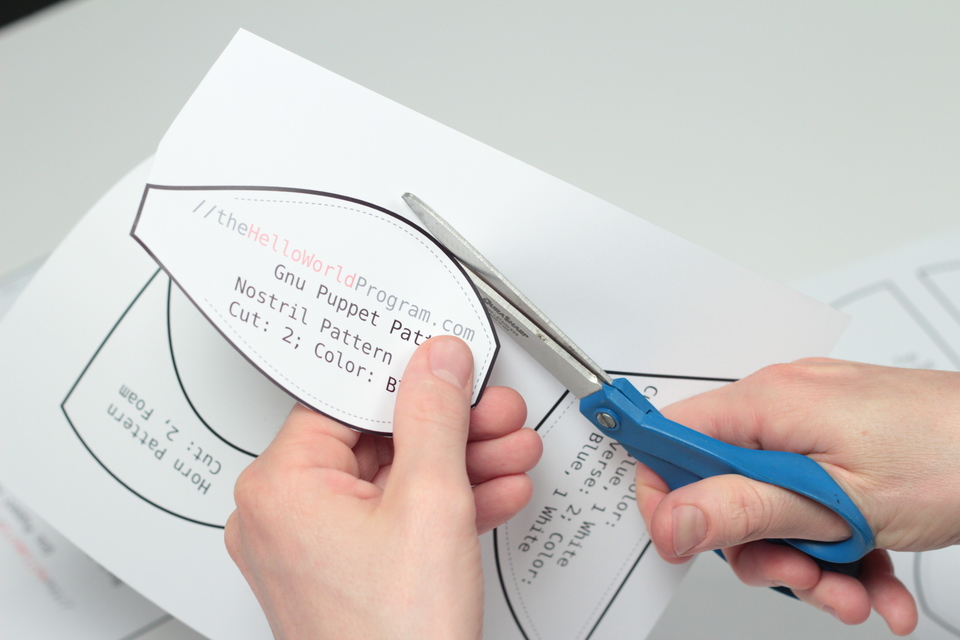 //theHelloWorldProgram.com
Gnu Puppet
Nostril Pattern
Cut: 2; Color:
Horn Pattern
Cut: 2, Foam
1 White
verse: 2; Color:
Blue, 1 White